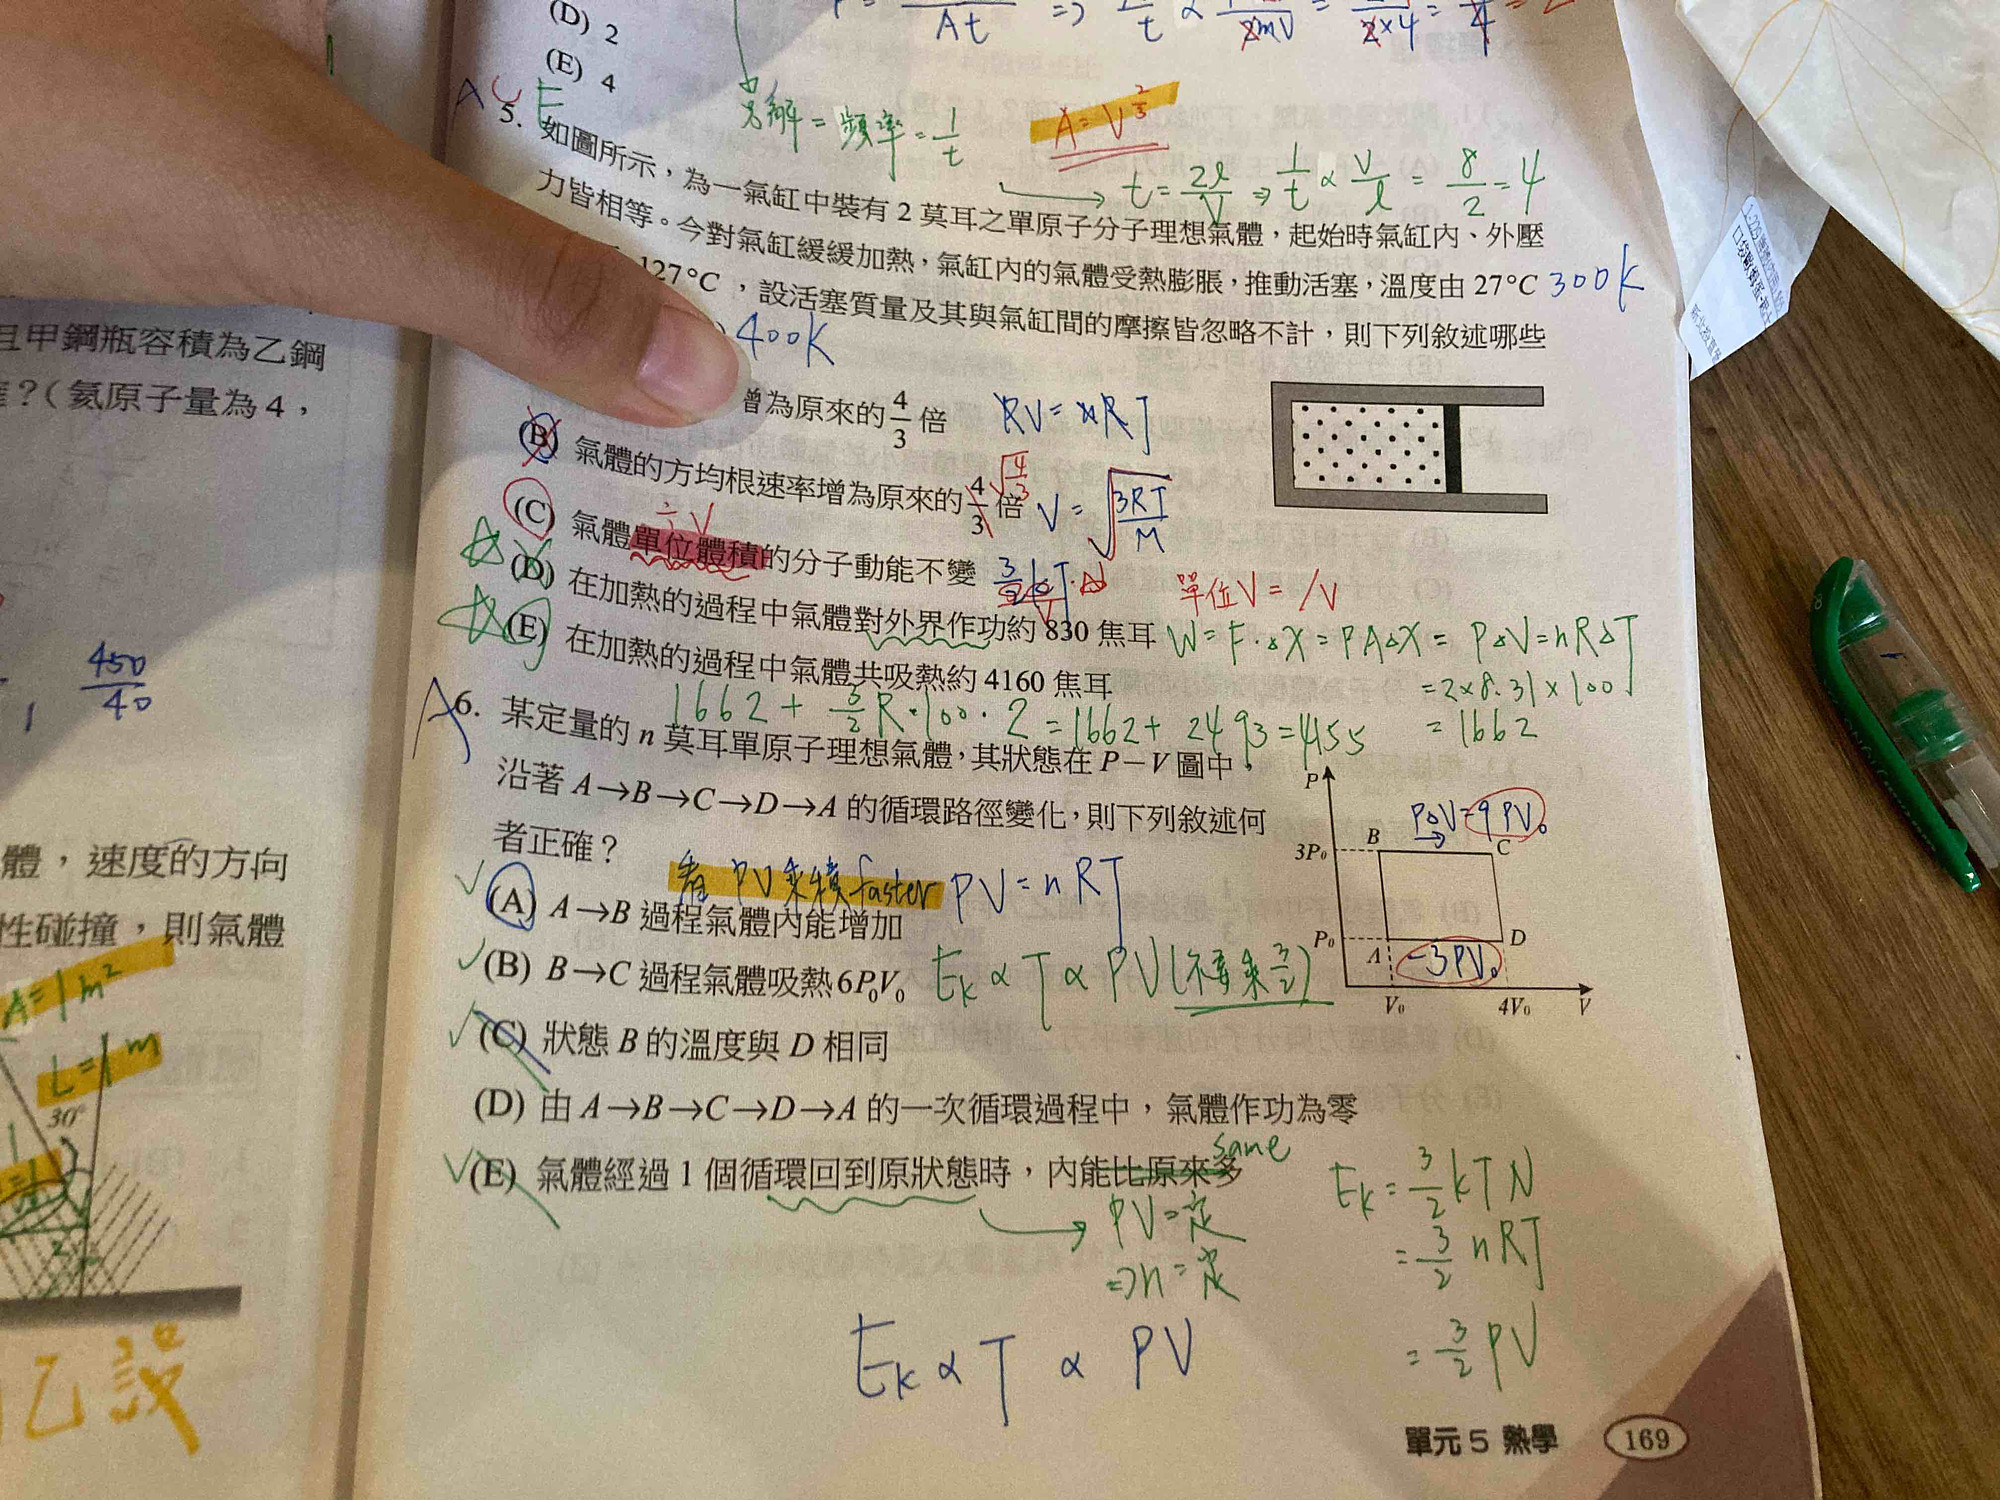 且甲鋼瓶容積為乙鋼
?(氦原子量為4,
450
40
1
體,速度的方向
性碰撞,則氣體
A=1m²
L=1m
30°
乙設
(D) 2
(E) 4
At
頻率=1/t
A=V^(2/3)
t=2ℓ/V ⇒ 1/t ∝ V/ℓ = 8/2=4
A C E
5. 如圖所示,為一氣缸中裝有 2 莫耳之單原子分子理想氣體,起始時氣缸內、外壓
力皆相等。今對氣缸緩緩加熱,氣缸內的氣體受熱膨脹,推動活塞,溫度由 27°C 300K
127°C,設活塞質量及其與氣缸間的摩擦皆忽略不計,則下列敘述哪些
400K
增為原來的 4/3 倍 PV=nRT
(B) 氣體的方均根速率增為原來的 4/3 倍 √(4/3) V=√(3RT/M)
÷V
(C) 氣體單位體積的分子動能不變 單位V=/V
(D) 在加熱的過程中氣體對外界作功約 830 焦耳 W=F·ΔX=PAΔX=PΔV=nRΔT
(E) 在加熱的過程中氣體共吸熱約 4160 焦耳 =2×8.31×100
1662+3/2R·100·2=1662+2493=4155 =1662
A
6. 某定量的 n 莫耳單原子理想氣體,其狀態在 P−V 圖中,
沿著 A→B→C→D→A 的循環路徑變化,則下列敘述何
者正確?
看PV乘積faster PV=nRT
(A) A→B 過程氣體內能增加
(B) B→C 過程氣體吸熱 6P₀V₀ Ek∝T∝PV(不要乘3/2)
(C) 狀態 B 的溫度與 D 相同
(D) 由 A→B→C→D→A 的一次循環過程中,氣體作功為零
same
(E) 氣體經過 1 個循環回到原狀態時,內能比原來多
PV=定
⇒n=定
P
PΔV=9PV₀
B
C
3P₀
P₀
A
D
-3PV₀
V₀
4V₀
V
Ek=3/2kTN
=3/2nRT
=3/2PV
Ek∝T∝PV
單元 5 熱學
169